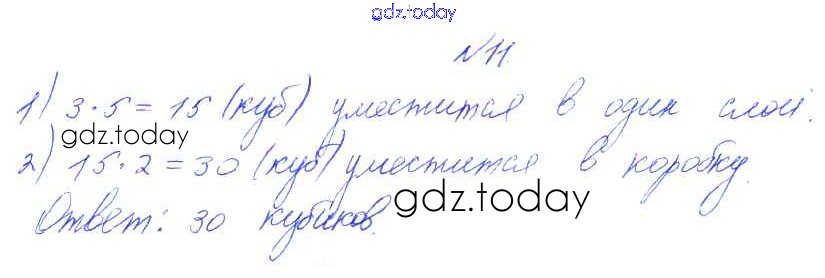 gdz.today
N11.
1) 3·5=15 (куб) уместится в один слой.
gdz.today
2) 15·2=30 (куб) уместится в коробку.
Ответ: 30 кубиков.
gdz.today